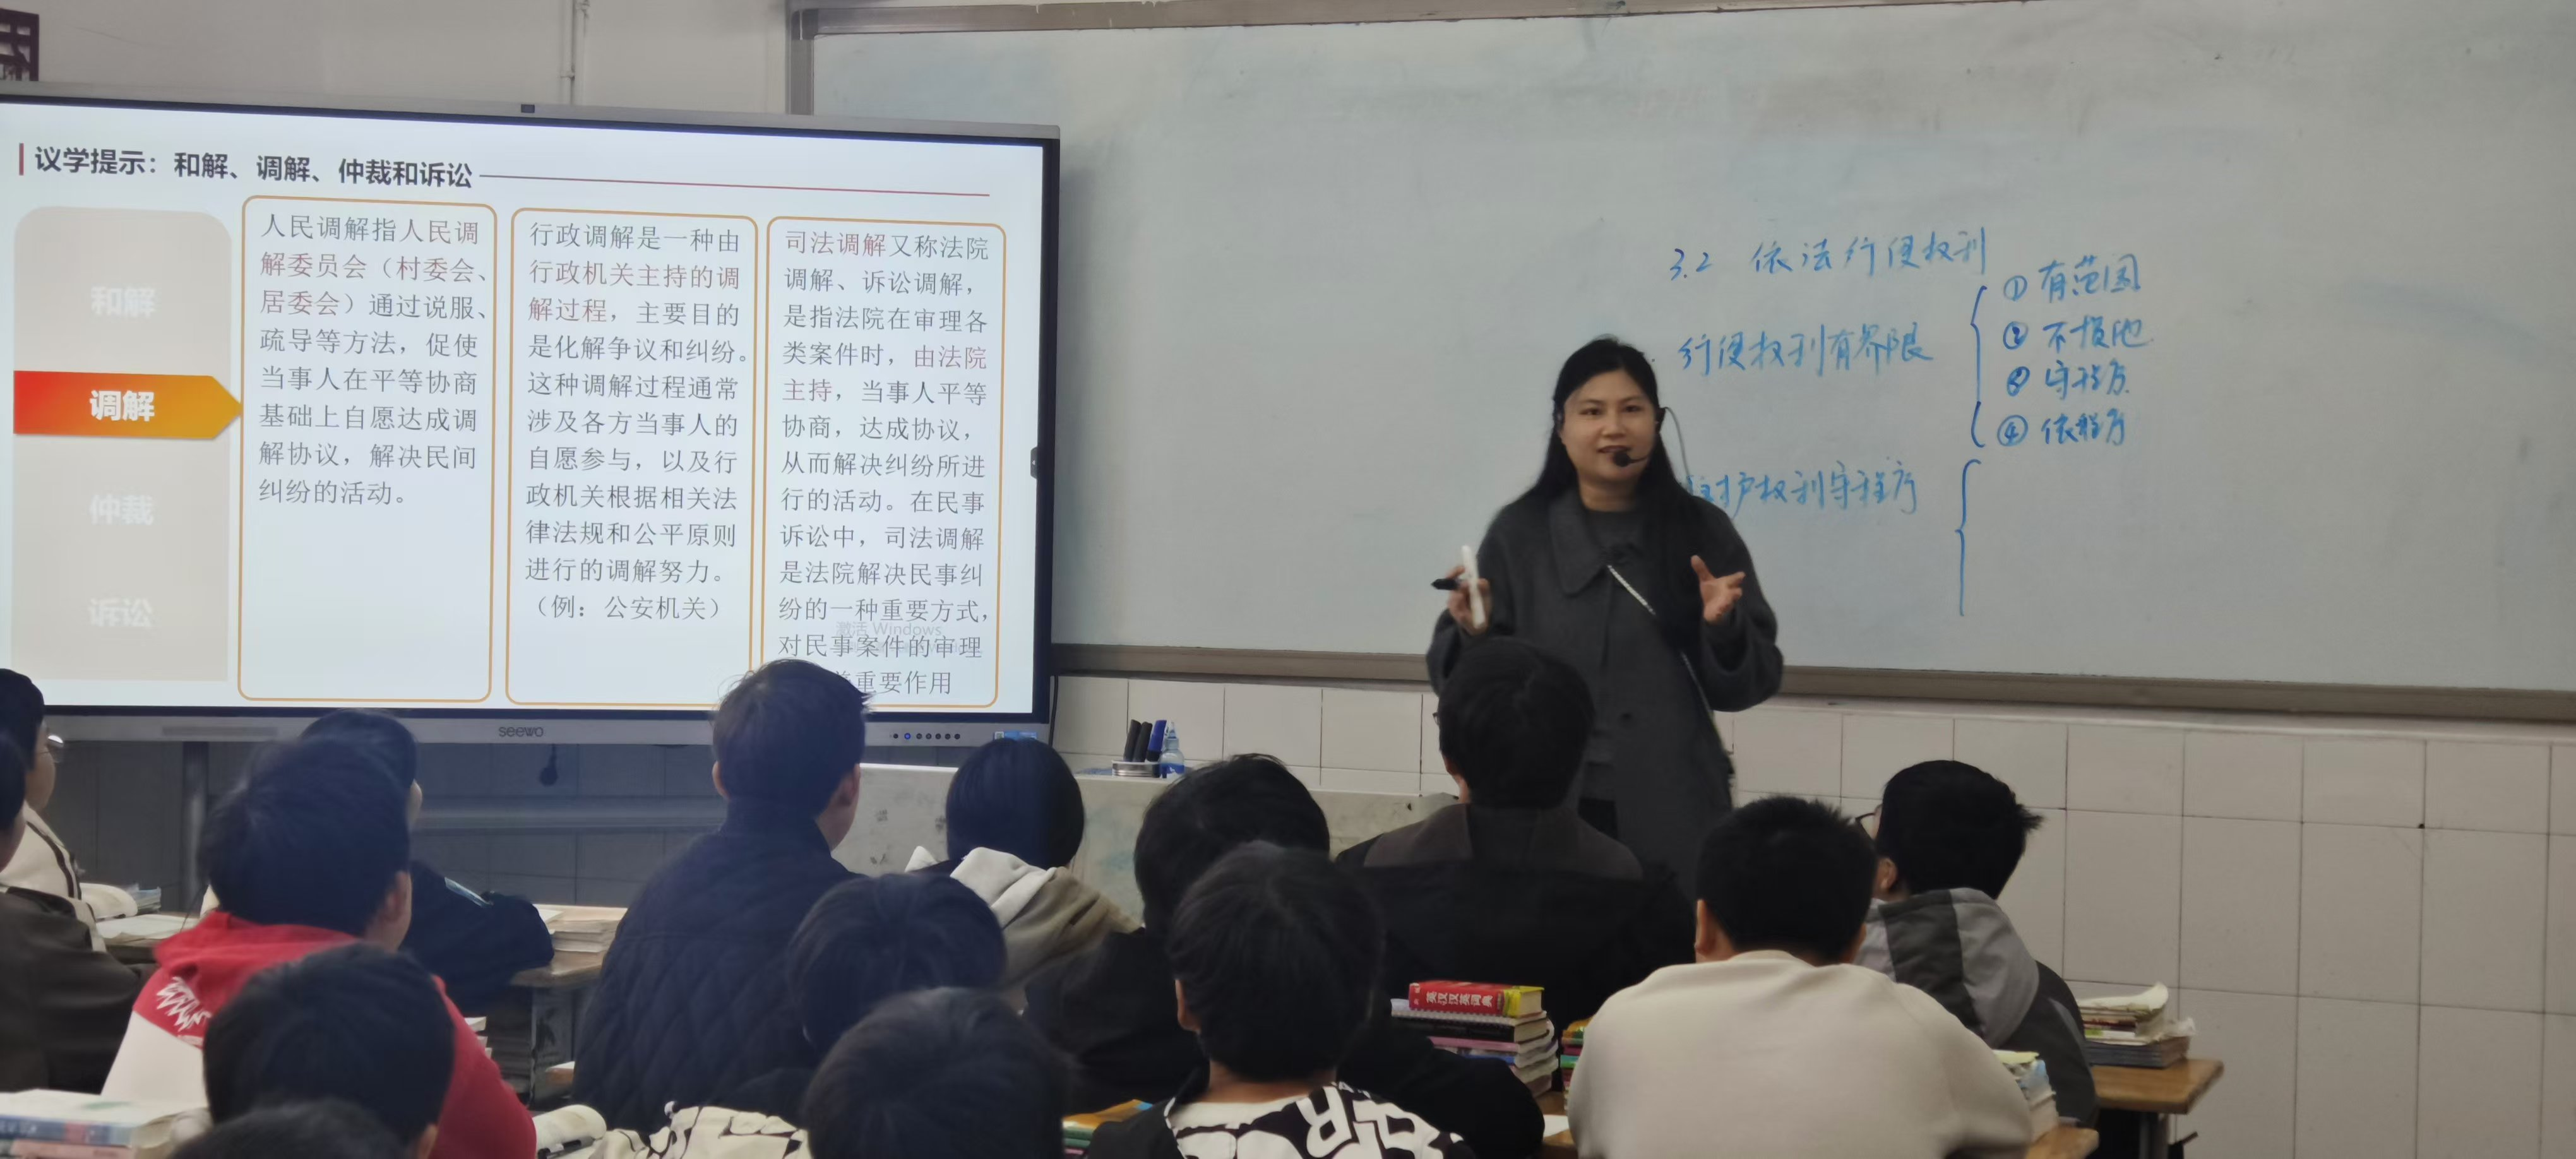 议学提示：和解、调解、仲裁和诉讼
和解
调解
仲裁
诉讼
人民调解指人民调
解委员会（村委会、
居委会）通过说服、
疏导等方法，促使
当事人在平等协商
基础上自愿达成调
解协议，解决民间
纠纷的活动。
行政调解是一种由
行政机关主持的调
解过程，主要目的
是化解争议和纠纷。
这种调解过程通常
涉及各方当事人的
自愿参与，以及行
政机关根据相关法
律法规和公平原则
进行的调解努力。
（例：公安机关）
司法调解又称法院
调解、诉讼调解，
是指法院在审理各
类案件时，由法院
主持，当事人平等
协商，达成协议，
从而解决纠纷所进
行的活动。在民事
诉讼中，司法调解
是法院解决民事纠
纷的一种重要方式，
对民事案件的审理
重要作用
激活 Windows
seewo
3.2 依法行使权利
行使权利有界限
① 有范围
② 不损他
③ 守程序
④ 依程序
维护权利守程序
英汉汉英词典